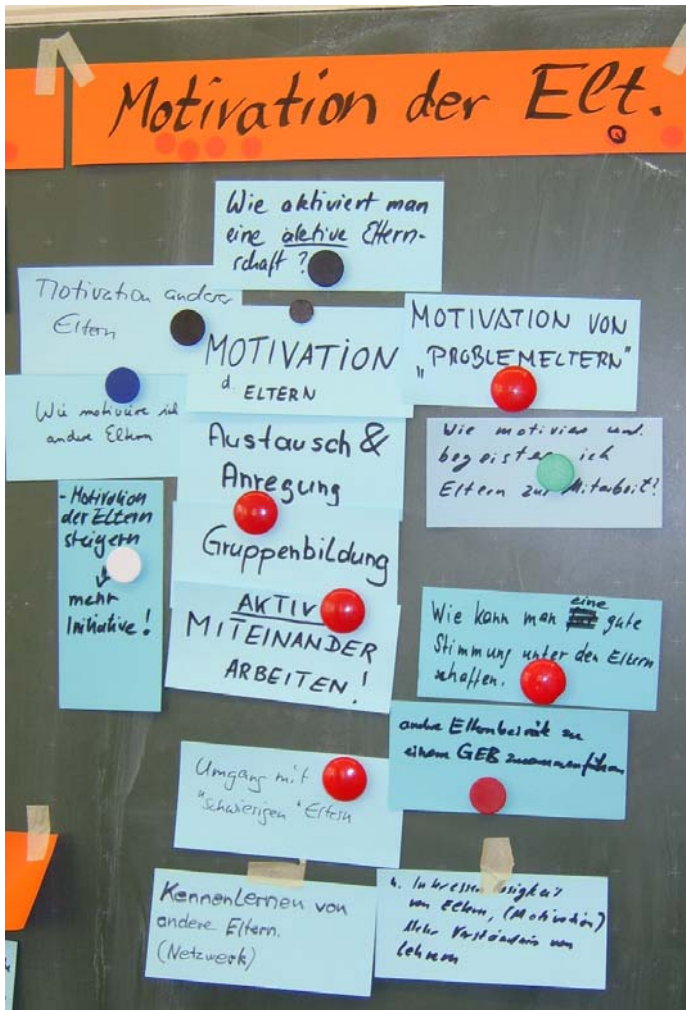 Motivation der Elt.
Wie aktiviert man
eine aktive Eltern-
schaft?
Motivation anderer
Eltern
MOTIVATION
d. ELTERN
MOTIVATION VON
„PROBLEMELTERN"
Wie motiviere ich
andere Eltern
Austausch &
Anregung
Wie motivier und
begeister ich
Eltern zur Mitarbeit?
- Motivation
der Eltern
steigern
↓
mehr
Initiative!
Gruppenbildung
AKTIV
MITEINANDER
ARBEITEN!
Wie kann man eine gute
Stimmung unter den Eltern
schaffen.
andere Elternbeiräte zu
einem GEB zusammenführen
Umgang mit
"schwierigen" Eltern
KennenLernen von
andere Eltern.
(Netzwerk)
von Eltern, (Motivation)
Mehr Verständnis von
Lehrern